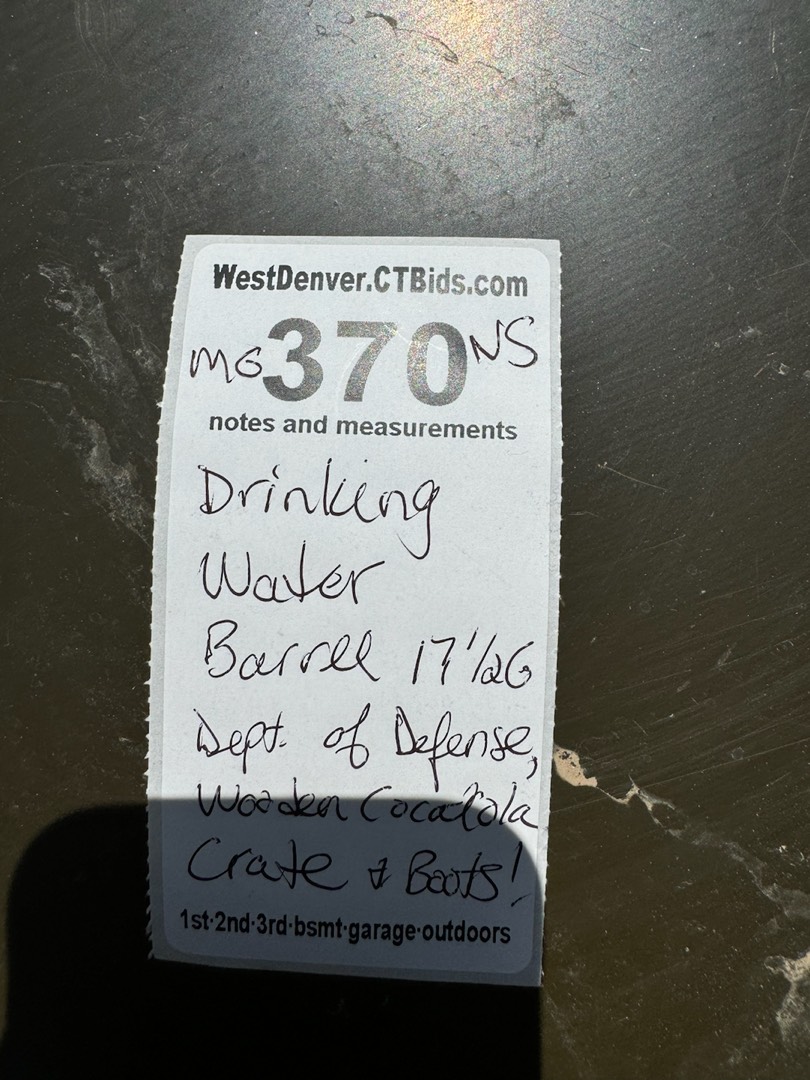 WestDenver.CTBids.com
MG 370 NS
notes and measurements
Drinking
Water
Barrell 17 1/2G
Dept. of Defense,
Wooden CocaCola
Crate & Boots!
1st·2nd·3rd·bsmt·garage·outdoors